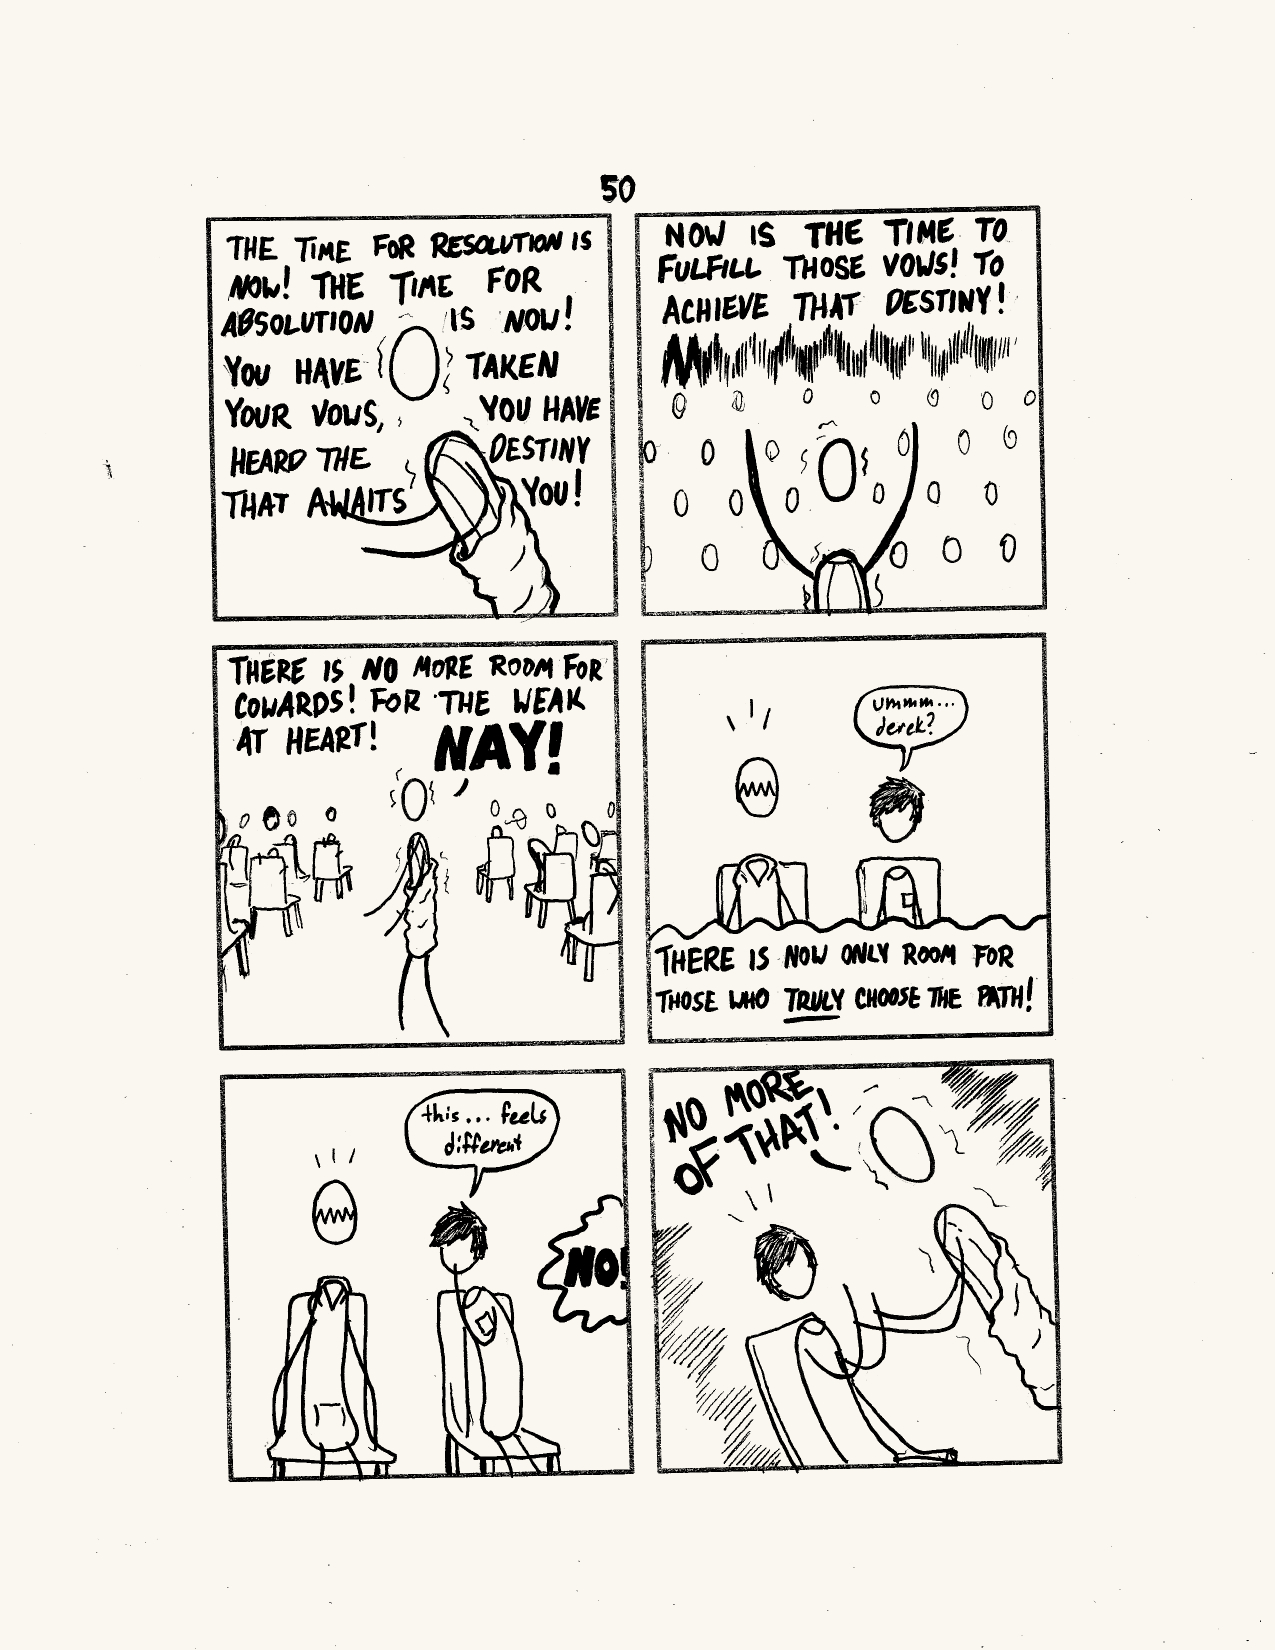 50
THE TIME FOR RESOLUTION IS
NOW! THE TIME FOR
ABSOLUTION IS NOW!
YOU HAVE TAKEN
YOUR VOWS, YOU HAVE
HEARD THE DESTINY
THAT AWAITS YOU!
NOW IS THE TIME TO
FULFILL THOSE VOWS! TO
ACHIEVE THAT DESTINY!
THERE IS NO MORE ROOM FOR
COWARDS! FOR THE WEAK
AT HEART!
NAY!
ummm...
derek?
THERE IS NOW ONLY ROOM FOR
THOSE WHO TRULY CHOOSE THE PATH!
this... feels
different
NO!
NO MORE
OF THAT!